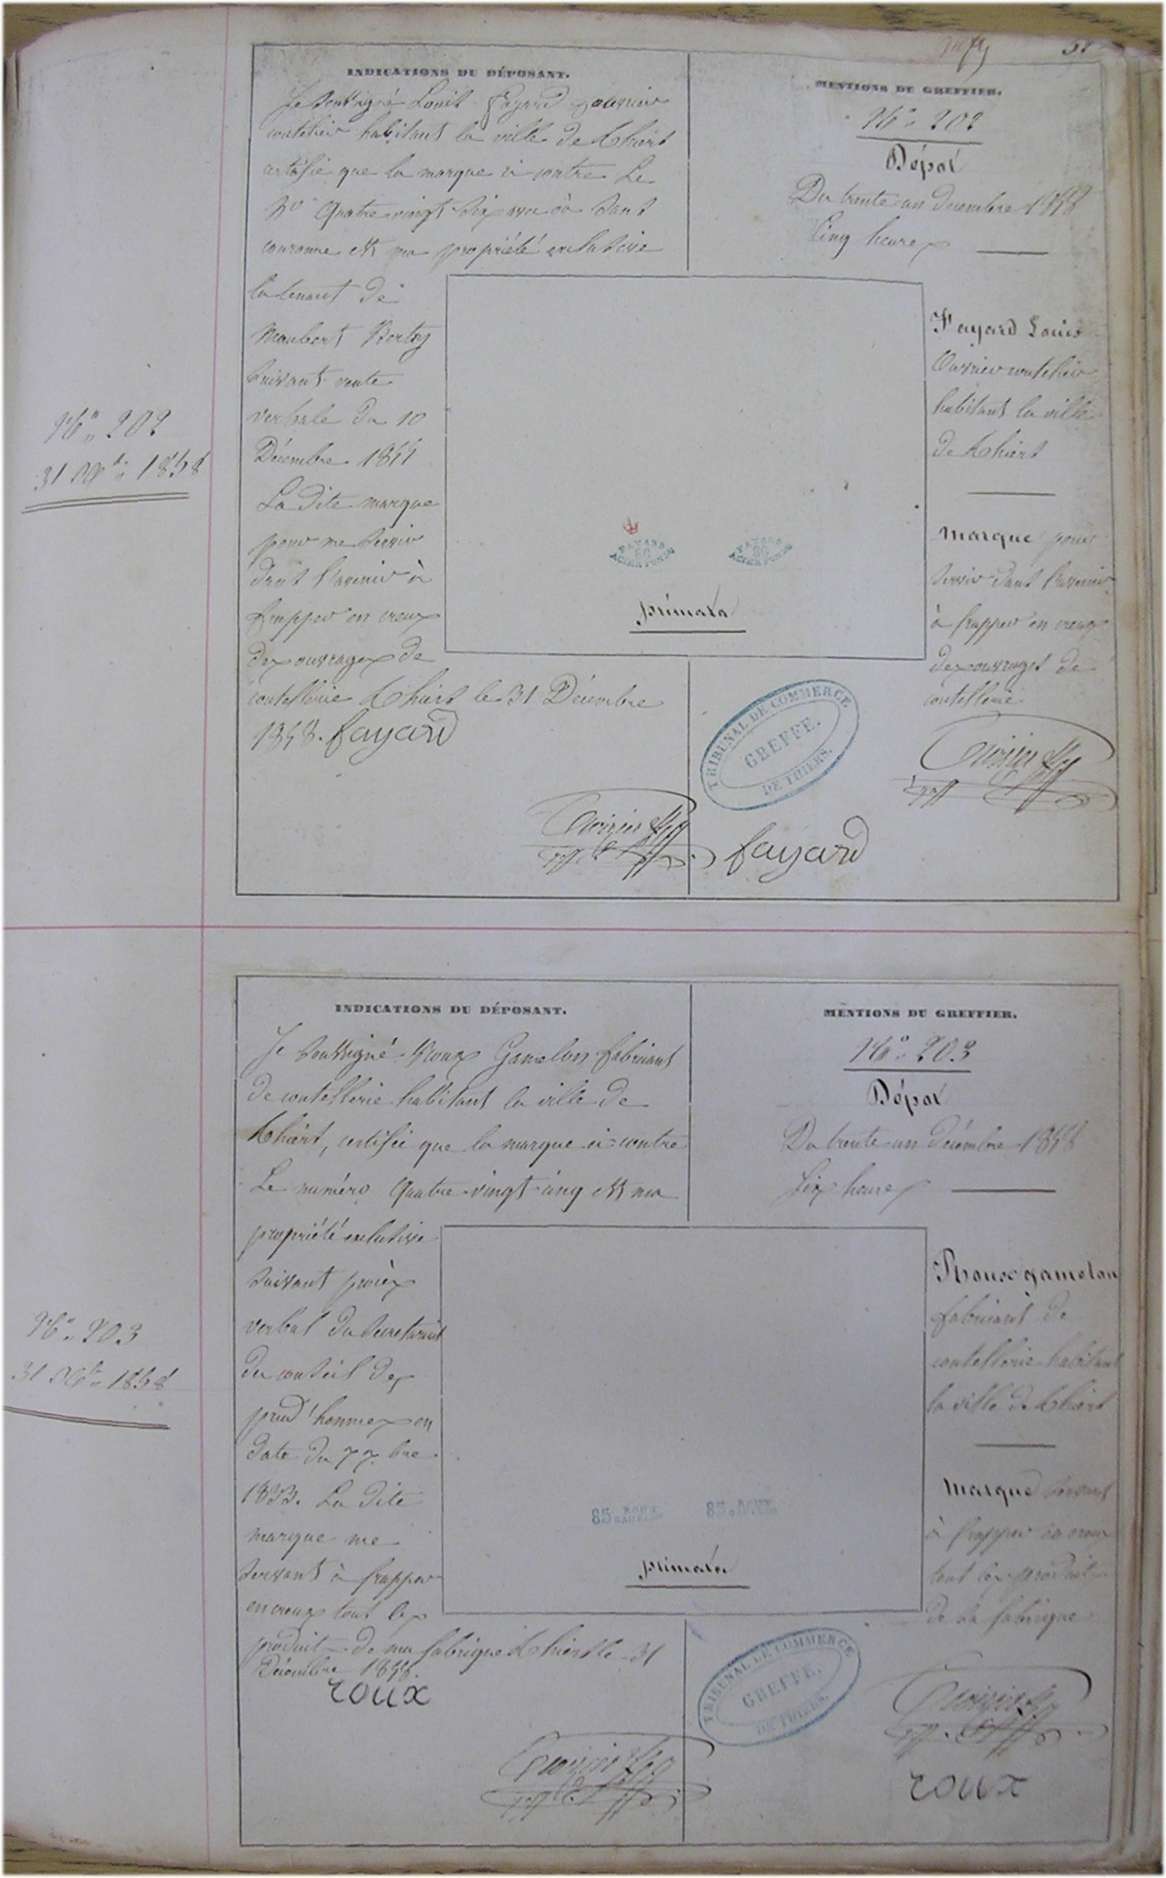 58
INDICATIONS DU DÉPOSANT.
Je soussigné Louis Fayard ouvrier
coutelier habitant la ville de Thiers
certifie que la marque ci contre Le
No Quatre vingt dix
couronne est ma propriété exclusive
la tenant de
Maubert
suivant vente
verbale du 10
Décembre
La dite marque
pour me servir
dans l'avenir à
frapper en creux
des ouvrages de
coutellerie Thiers le 31 Décembre
1858. fayard
MENTIONS DU GREFFIER.
No. 202
Dépôt
Du trente un décembre 1858
Cinq heures
Fayard Louis
Ouvrier coutelier
habitant la ville
de Thiers
Marque pour
servir dans l'avenir
à frapper en creux
des ouvrages de
coutellerie
No. 202
31 Xbre 1858
ACIER FONDU
ACIER FONDU
primata
TRIBUNAL DE COMMERCE
GREFFE.
DE THIERS.
fayard
INDICATIONS DU DÉPOSANT.
Je soussigné Roux Gamelon fabricant
de coutellerie habitant la ville de
Thiers, certifie que la marque ci contre
Le numéro Quatre-vingt-cinq est ma
propriété exclusive
suivant procès
verbal du secretariat
du conseil des
prud'hommes en
date du 7 7bre
1833. La dite
marque me
servant à frapper
en creux tous les
produits de ma fabrique Thiers le 31
Décembre 1858.
roux
MENTIONS DU GREFFIER.
No. 203
Dépôt
Du trente un décembre 1858
Six heures
Roux gamelon
fabricant de
coutellerie habitant
la ville de Thiers
Marque servant
à frapper en creux
tous les produits
de sa fabrique
No. 203
31 Xbre 1858
85 ROUX GAMELON
85 ROUX
primata
TRIBUNAL DE COMMERCE
GREFFE.
DE THIERS.
roux